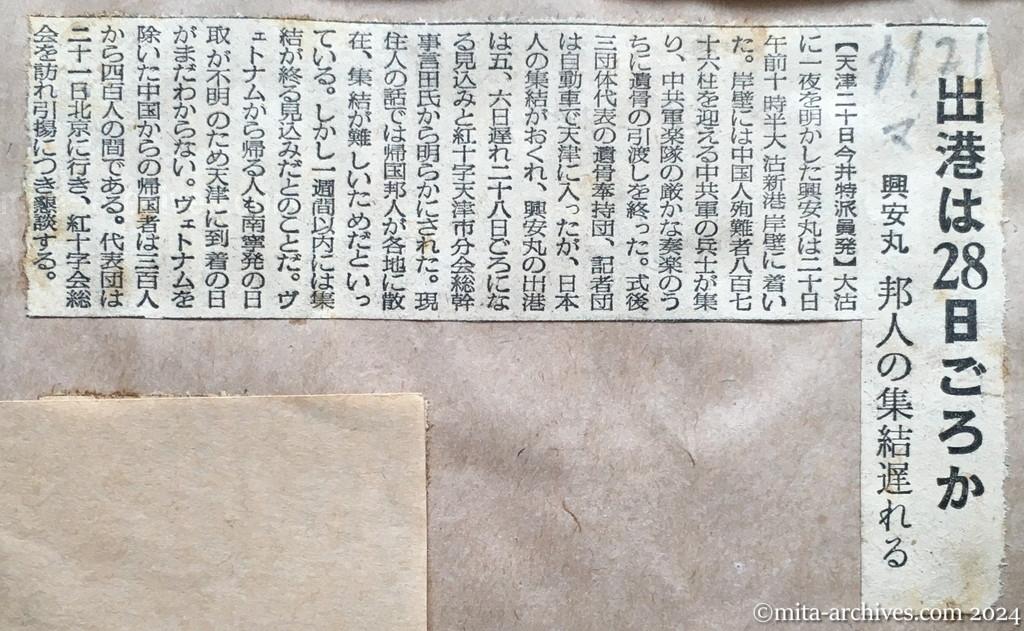 出港は28日ごろか
興安丸 邦人の集結遅れる
【天津二十日今井特派員発】大沽
に一夜を明かした興安丸は二十日
午前十時半大沽新港岸壁に着い
た。岸壁には中国人殉難者八百七
十六柱を迎える中共軍の兵士が集
り、中共軍楽隊の厳かな奏楽のう
ちに遺骨の引渡しを終った。式後
三団体代表の遺骨奉持団、記者団
は自動車で天津に入ったが、日本
人の集結がおくれ、興安丸の出港
は五、六日遅れ二十八日ごろにな
る見込みと紅十字天津市分会総幹
事言田氏から明らかにされた。現
住人の話では帰国邦人が各地に散
在、集結が難しいためだといっ
ている。しかし一週間以内には集
結が終る見込みだとのことだ。ヴ
ェトナムから帰る人も南寧発の日
取が不明のため天津に到着の日
がまだわからない。ヴェトナムを
除いた中国からの帰国者は三百人
から四百人の間である。代表団は
二十一日北京に行き、紅十字会総
会を訪れ引揚につき懇談する。
©mita-archives.com 2024